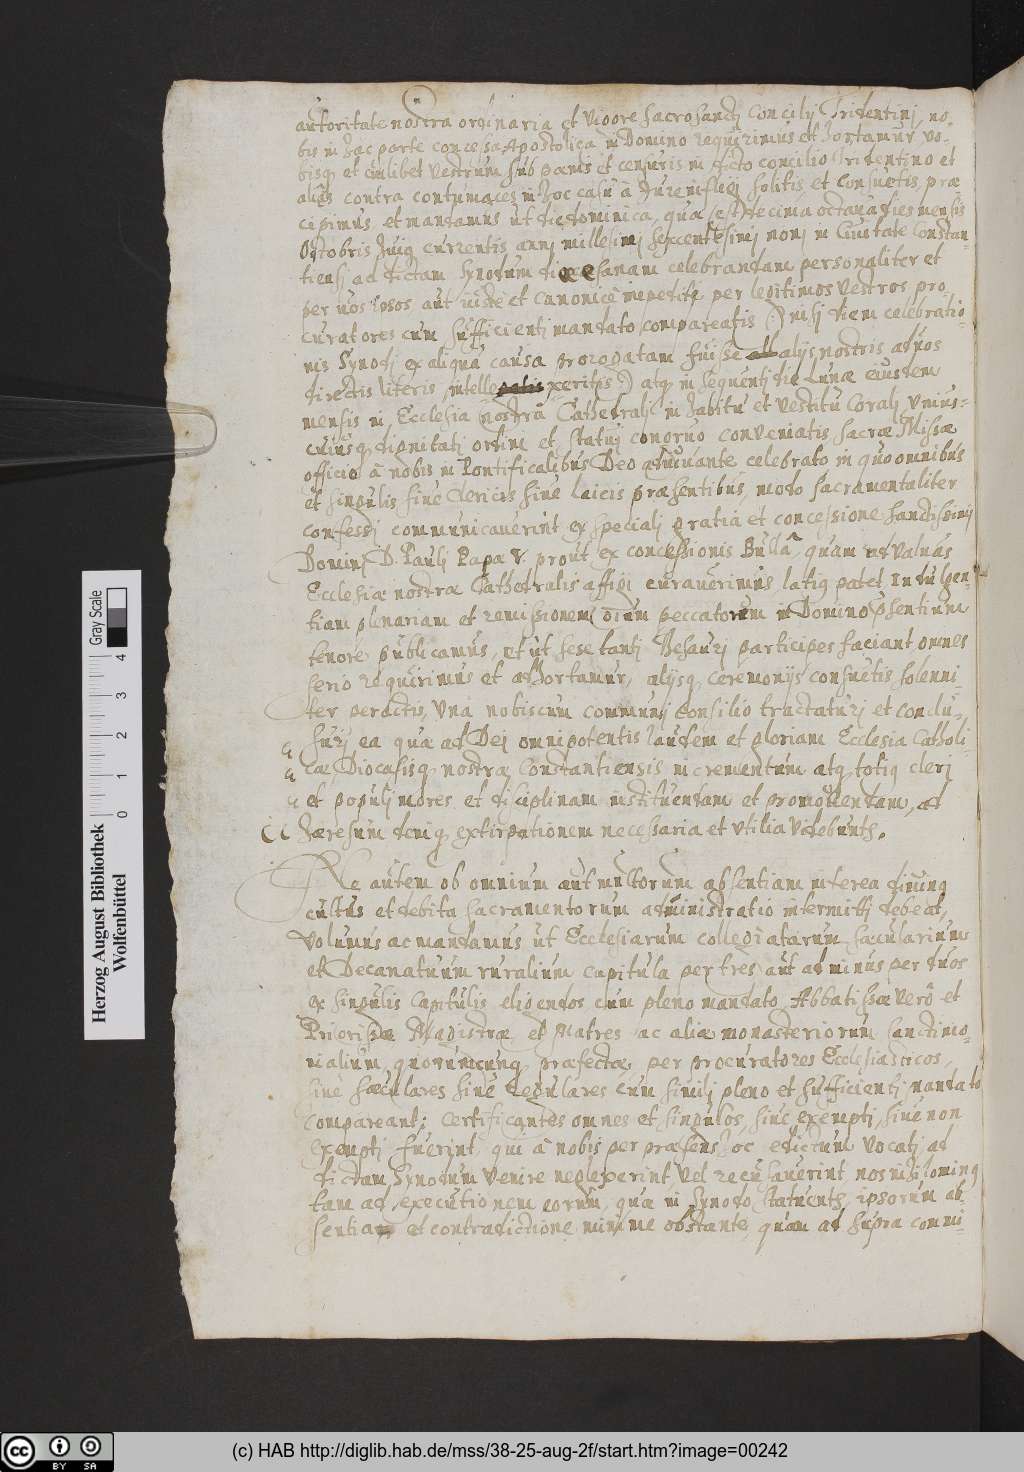 autoritate nostra ordinaria et vigore sacrosancti Concilij Tridentinj, no-
bis in hac parte concessa Apostolica in Domino requirimus et hortamur vo-
bisq et cuilibet vestrum sub paenis et censuris in dicto concilio Tridentino et
aliâs contra contumaces in hoc casu â Jure infligj solitis et consuetis, præ
cipimus et mandamus ut die dominica, quæ est decima octava dies mensis
Octobris huiq currentis annj millesimj sexcentesimj nonj in Civitate Constan-
tiensj ad dictam Synodum dioecesanam celebrandam personaliter et
per uos ipsos aut iuste et canonicè impeditj per legitimos vestros pro
curatores cum sufficientj mandato compareatis (: nisj diem celebratio-
nis Synodj ex aliqua causa prorogatam fuisse alijs nostris ad uos
directis literis intellexeritis :) atq in sequentj die Lunæ eiusdem
mensis in Ecclesia nostra Cathedralj in habitu et vestitu Coralj vnius-
cuiusq dignitatj ordini et statuj congruo conveniatis sacræ Missæ
officio à nobis in Pontificalibus Deo adiuuante celebrato in quo omnibus
et singulis siue Clericis siue Laicis præsentibus, modo sacramentaliter
confessj communicauerint ex specialj gratia et concessione sanctissimj
Dominj D. Paulj Papæ V. prout ex concessionis Bulla, quam ad valuas
Ecclesiæ nostræ Cathedralis affigi curauerimus, latiq patet Indulgen-
tiam plenariam et remissionem oium peccatorum in Domino psentium
tenore publicamus, et ut sese tantj Thesaurj participes faciant omnes
serio requirimus et adhortamur, alijsq ceremonijs consuetis solenni-
ter peractis, vna nobiscum communj consilio tractaturj et conclu-
surj ea quæ ad Dej omnipotentis laudem et gloriam Ecclesiæ Catholi-
cæ Diocæsisq nostræ Constantiensis incrementum atq totiq clerj
et populj mores et disciplinam instituendam et promouendam, ad
hæresum deniq extirpationem necessaria et vtilia videbuntr.
Ne autem ob omnium aut multorum absentiam interea diuinq
cultus et debita sacramentorum administratio intermittj debeat,
volumus ac mandamus ut Ecclesiarum collegiatarum, sæcularium
et Decanatuum ruralium capitula per tres aut ad minus per duos
ex singulis Capitulis eligendos cum pleno mandato, Abbatissæ verô et
Priorissæ Magistræ et Matres ac aliæ monasteriorum sanctimo-
nialium quorumcunq præfectæ, per procuratores Ecclesiasticos,
siue sæculares siue regulares cum similj pleno et sufficientj mandato
compareant; certificantes omnes et singulos, siue exemptj, siue non
exemptj fuerint, qui â nobis per præsens hoc edictum vocatj ad
dictam Synodum venire neglexerint, vel recusauerint nos nihilominq
tam ad executionem eorum, quæ in Synodo statuentr, ipsorum ab
sentia et contradictione minime obstante, quam ad supra commi-
Herzog August Bibliothek
Wolfenbüttel
0 1 2 3 4
Gray Scale
cc BY SA
(c) HAB http://diglib.hab.de/mss/38-25-aug-2f/start.htm?image=00242